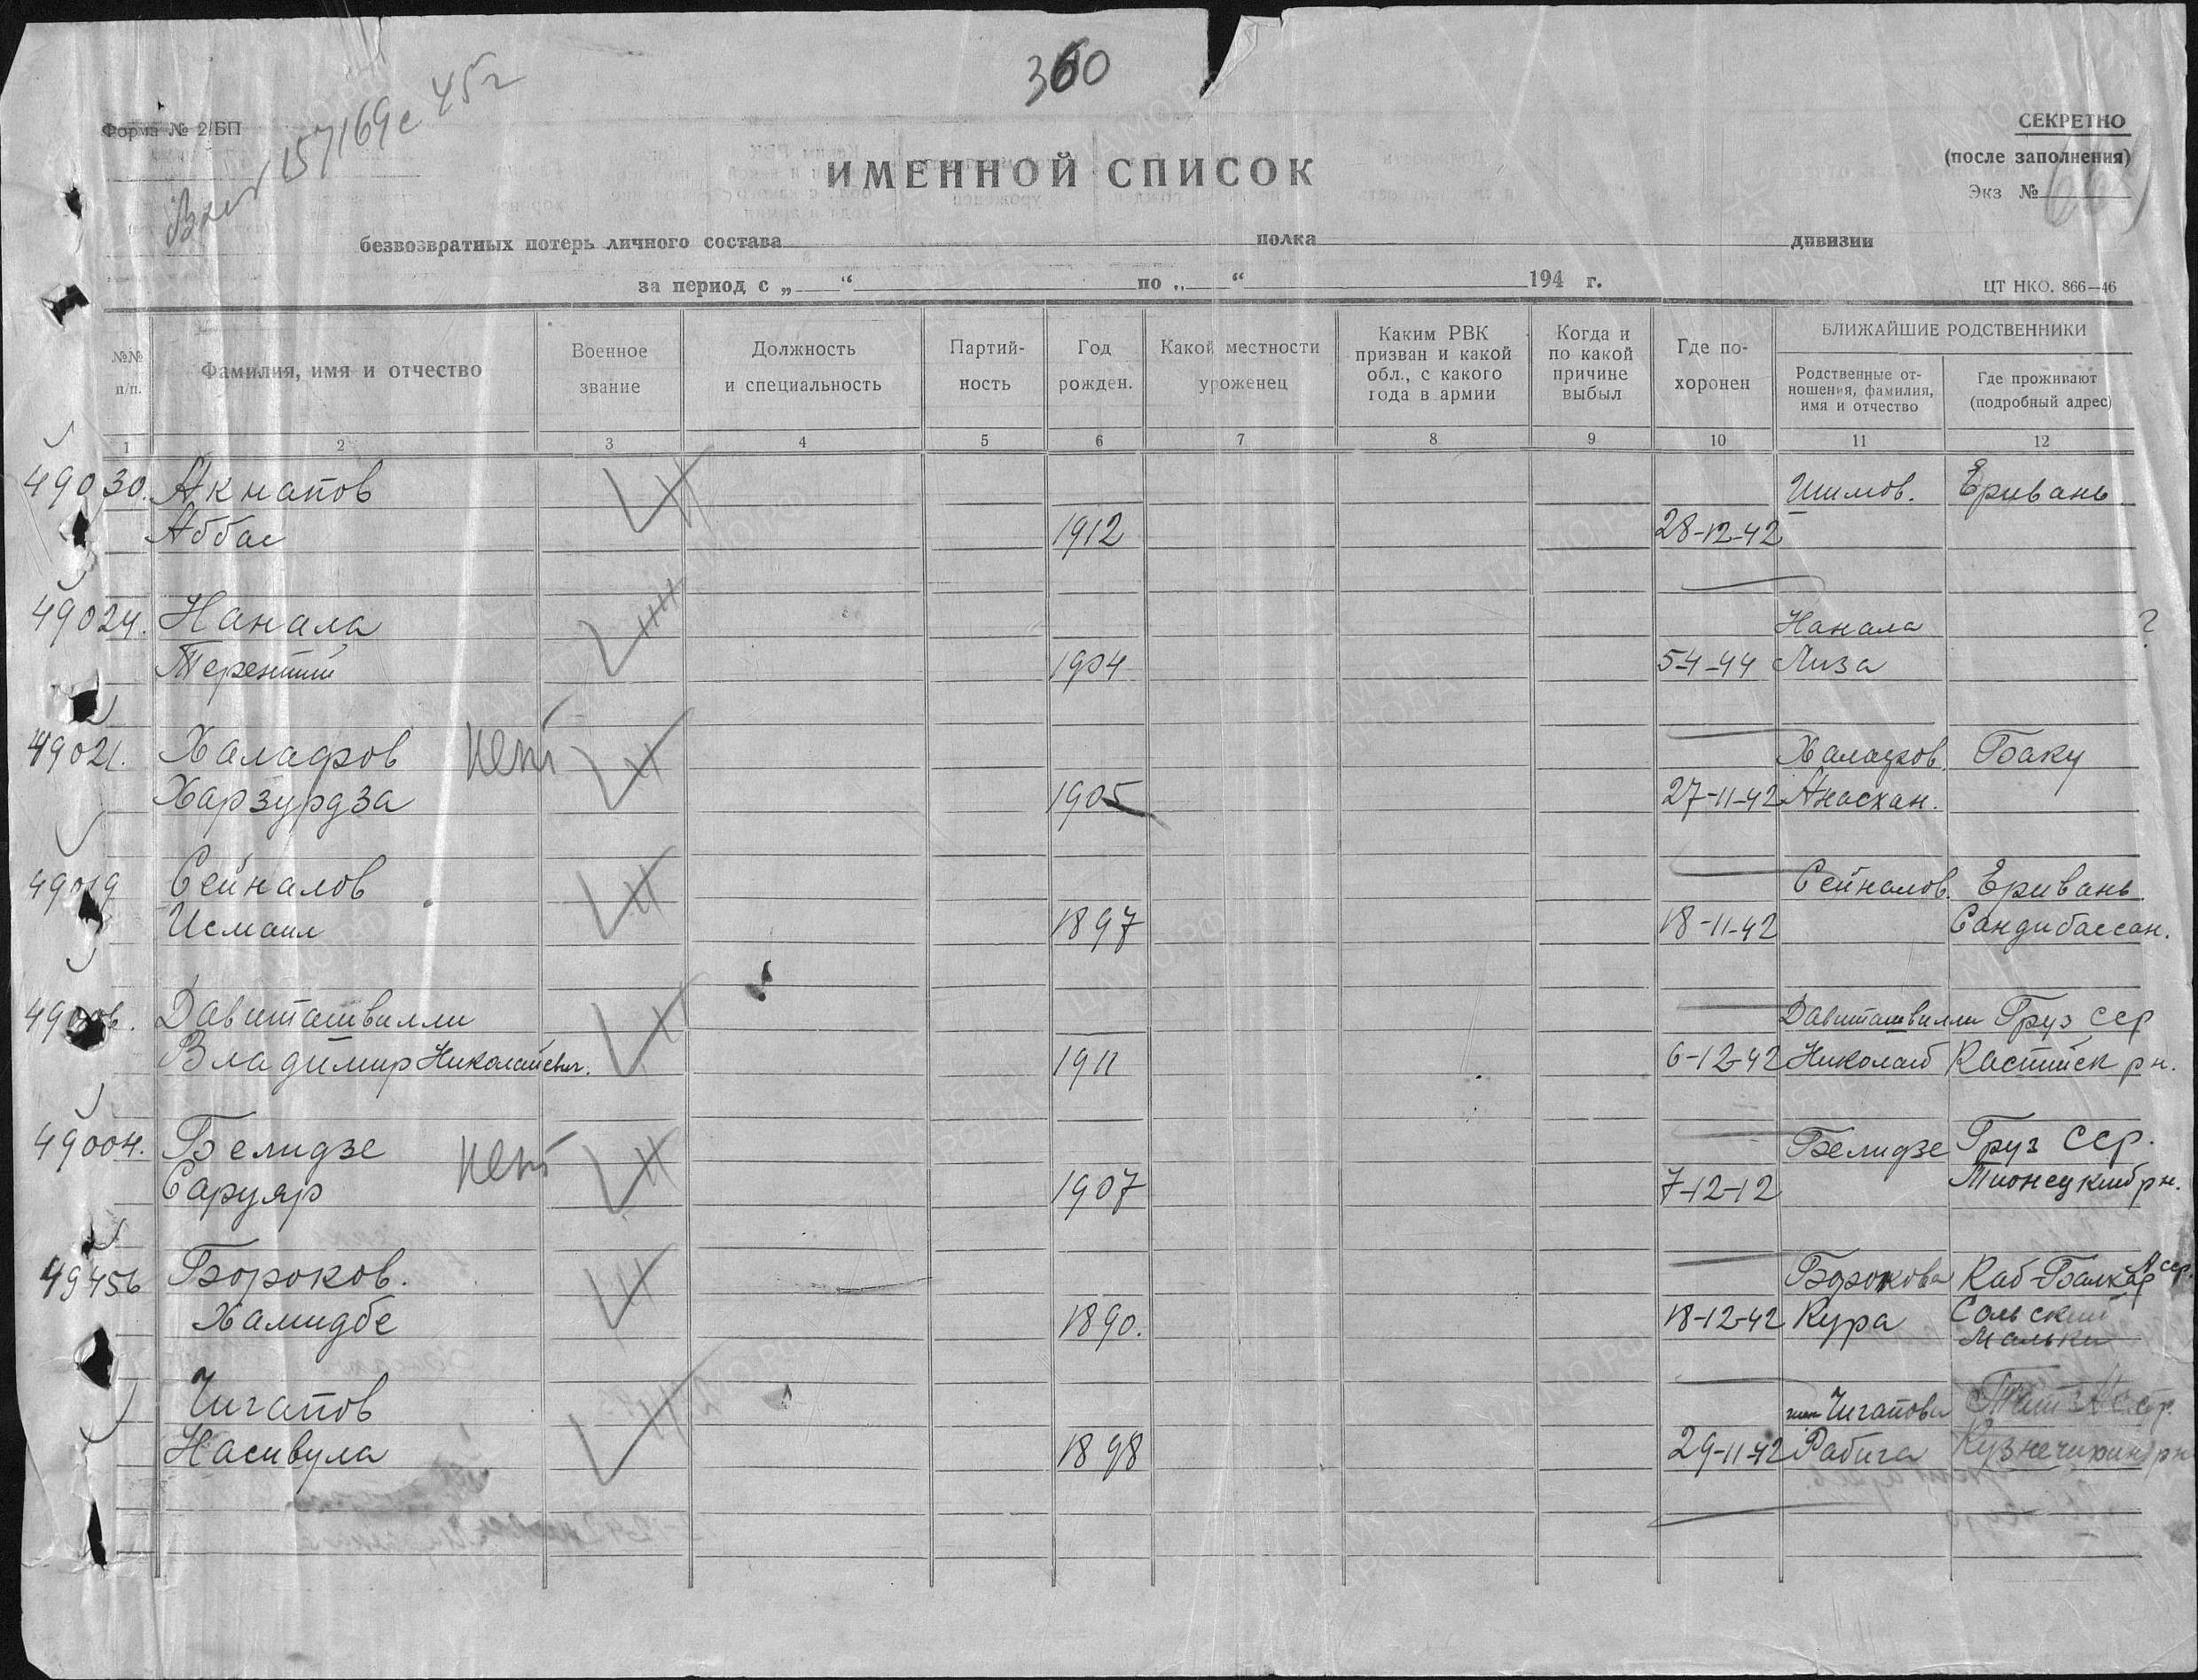 360
Форма № 2/БП
Вход 157169с 45г
СЕКРЕТНО
(после заполнения)
Экз №
ИМЕННОЙ СПИСОК
безвозвратных потерь личного состава полка дивизии
за период с „ “ по „ “ 194 г.
ЦТ НКО. 866—46
№№ п/п.
Фамилия, имя и отчество
Военное звание
Должность и специальность
Партий-ность
Год рожден.
Какой местности уроженец
Каким РВК призван и какой обл., с какого года в армии
Когда и по какой причине выбыл
Где по-хоронен
БЛИЖАЙШИЕ РОДСТВЕННИКИ
Родственные от-ношения, фамилия, имя и отчество
Где проживают (подробный адрес)
1 2 3 4 5 6 7 8 9 10 11 12
49030. Акнапов Шимов. Еривань
Аббас 1912 28-12-42
49024. Нанала Нанала ?
Терентий 1904 5-4-44 Лиза
49021. Халафов нет Халафов. Баку
Харзурдза 1905 27-11-42 Анасхан.
49019 Сейналов Сейналов. Еривань
Исмаил 1897 18-11-42 Сандибассан.
Давиташвилли Давиташвилли Груз ССР
Владимир Николаевич. 1911 6-12-42 Николай Кастийск рн.
49004. Белидзе нет Белидзе Груз ССР.
Саруяр 1907 7-12-12
49456 Бороков. Борокова Каб-Балкар Асср.
Хамидбе 1890. 18-12-42 Кура Сольский
Мальки
Чигапов жен Чигапова Тат Асср.
Насивула 1898 29-11-42 Рабига Кузнечихин рн